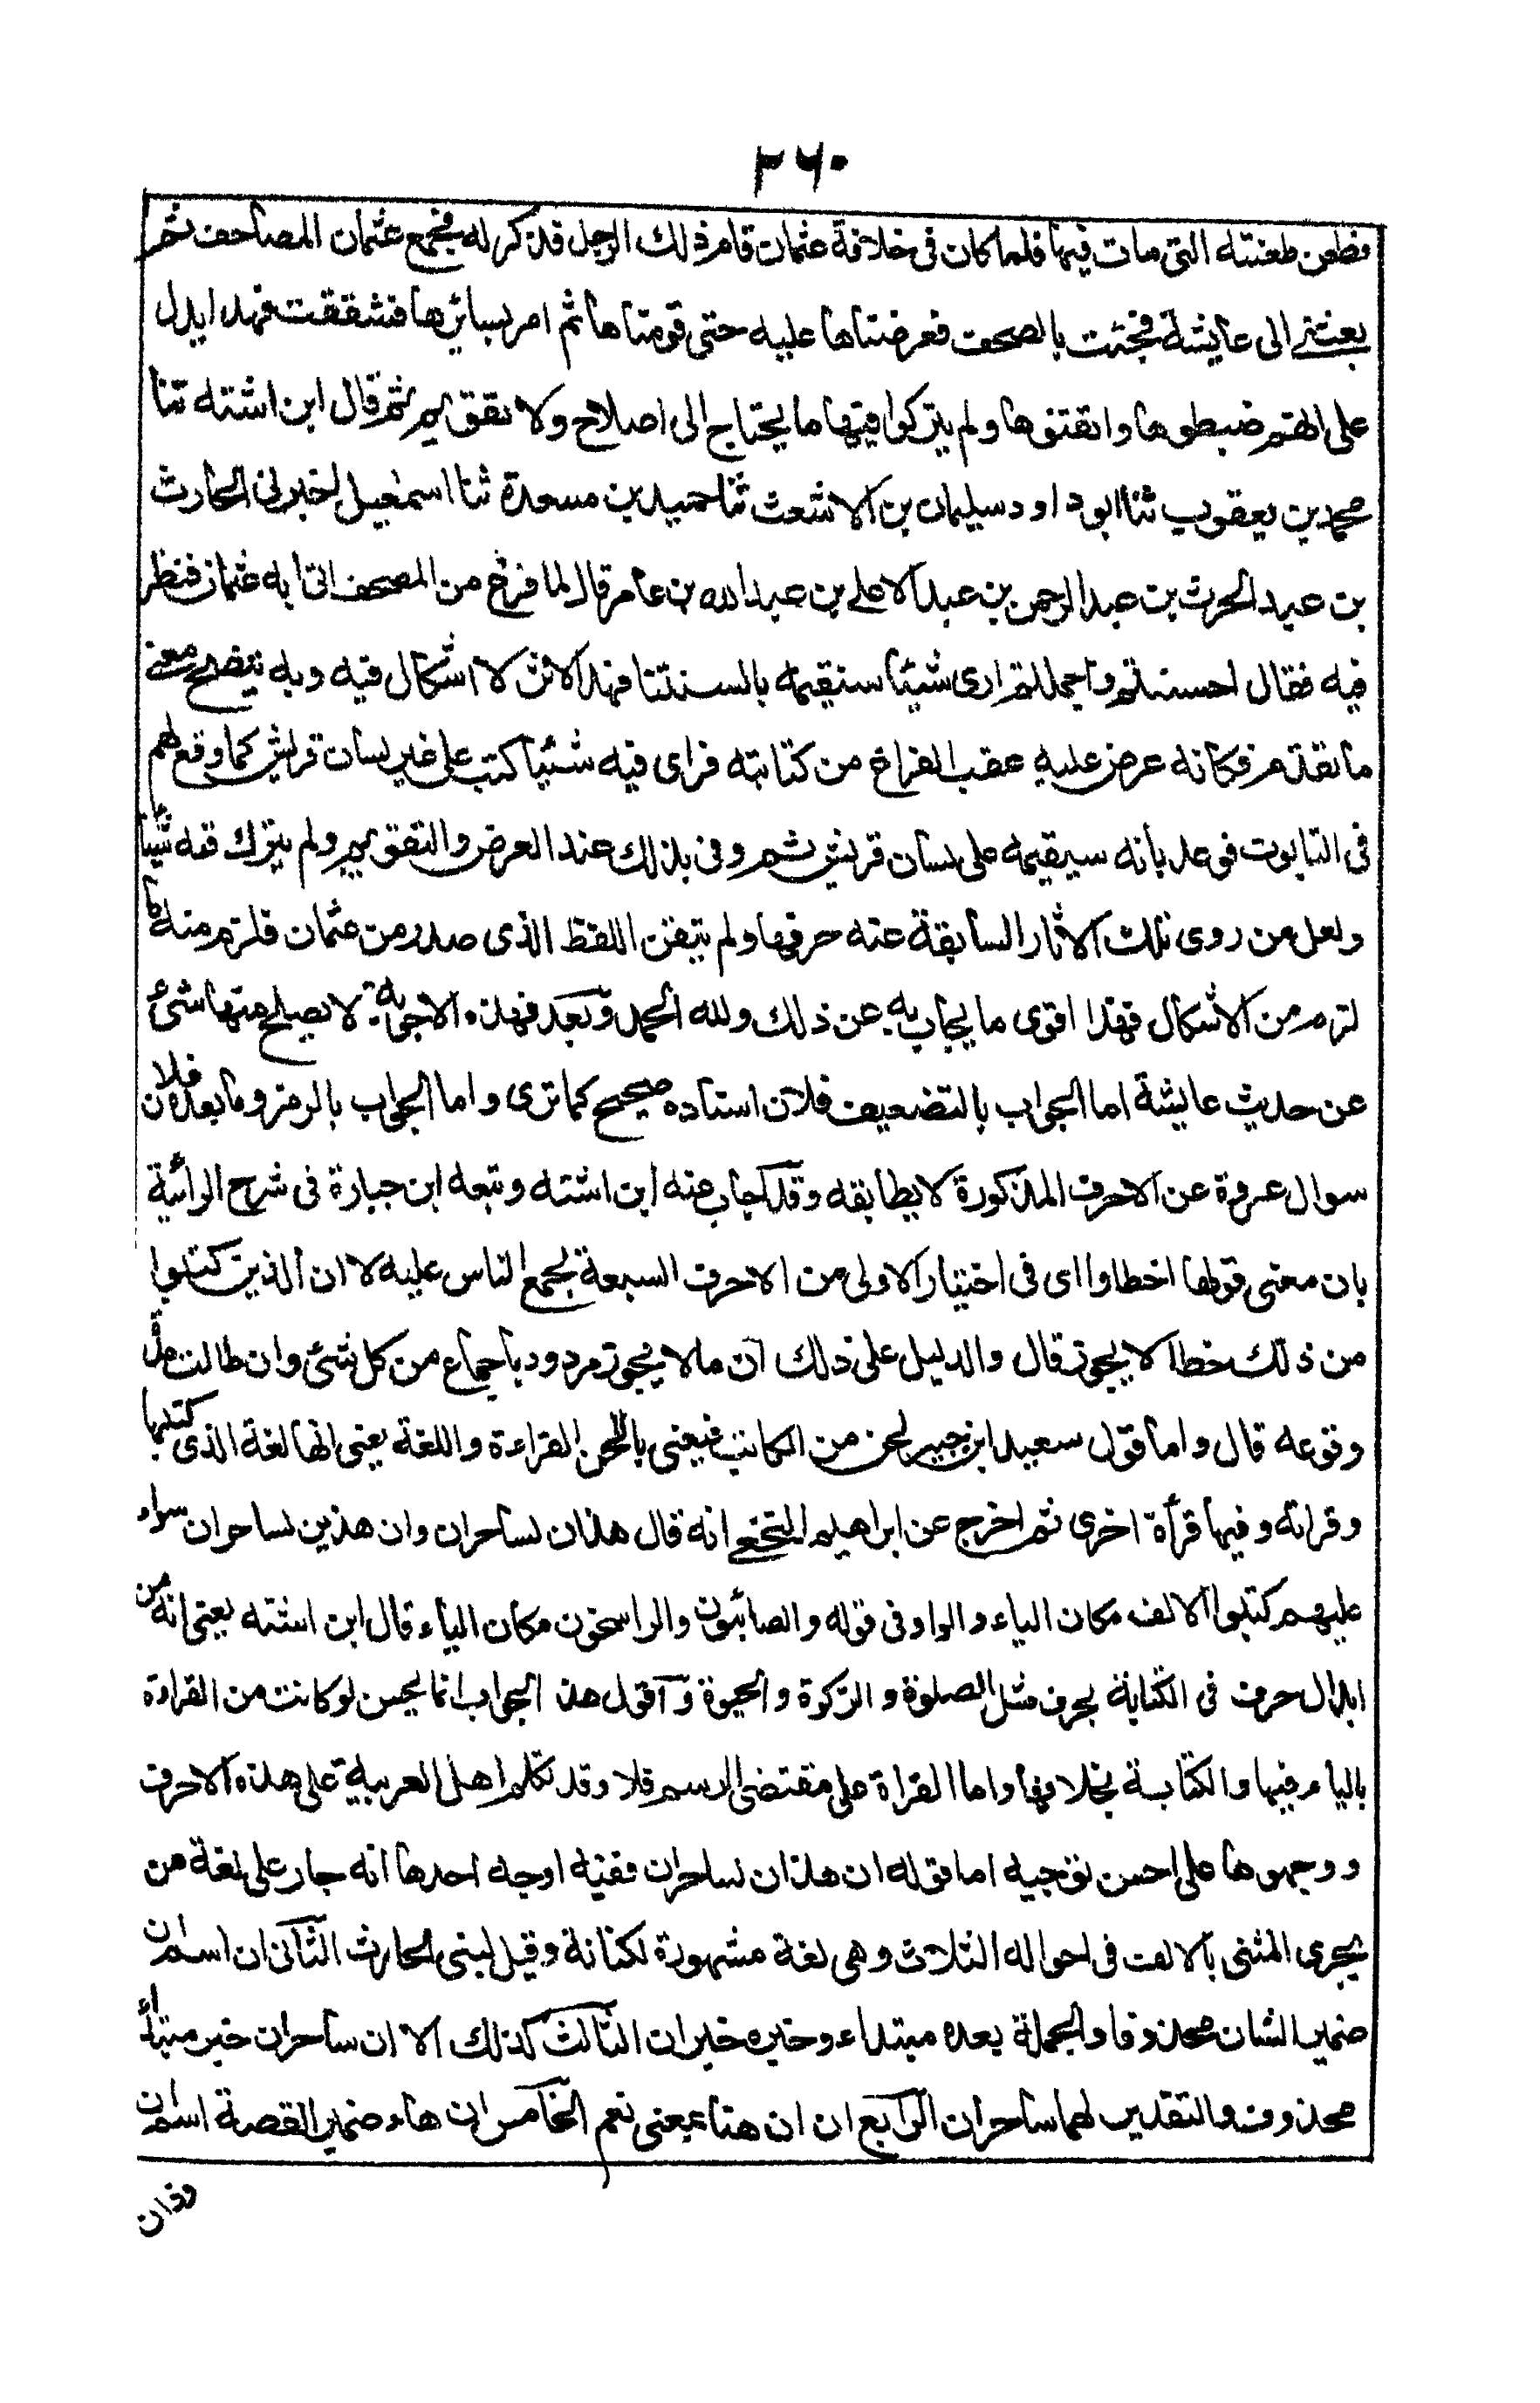 ٣٦٠
فطعن طعنته التى مات فيها فلما كان فى خلافة عثمان قام ذلك الرجل فذكر له فجمع عثمان المصاحف ثم
بعثنى الى عايشة فجئت بالصحف فعرضناها عليه حتى قومناها ثم امر بسائرها فشققت فهذا ايدل
على انهم ضبطوها واتقنوها ولم يتركوا فيها ما يحتاج الى اصلاح ولا تقويم ثم قال ابن اشته ثنا
محمد بن يعقوب ثنا ابو داود سليمان بن الاشعث ثنا حميد بن مسعدة ثنا اسمعيل اخبرنى الحارث
بن عبد الحرث بن عبد الرحمن بن عبد الاعلى بن عبد الله بن عامر قال لما فرغ من المصحف اتى به عثمان فنظر
فيه فقال احسنتم واجملتم ارى شيئا سنقيمه بالسنتنا فهذا الاثر لا اشكال فيه وبه يتضح معنى
ما تقدم فكانه عرض عليه عقب الفراغ من كتابته فراى فيه شئيا كتب على غير لسان قريش كما وقع لهم
فى التابوت فوعد بأنه سيقيمه على لسان قريش ثم وفى بذلك عند العرض والتقويم ولم يترك فيه شيئا
ولعل من روى تلك الاثار السابقة عنه حرفها ولم يتيقن اللفظ الذى صدر من عثمان فلزم منه ما
لزم من الاشكال فهذا اقوى ما يجاب به عن ذلك ولله الحمد وبعد فهذه الاجوبة لا يصلح منها شئ
عن حديث عايشة اما الجواب بالتضعيف فلان اسناده صحيح كما ترى واما الجواب بالرمز وما بعده فلان
سوال عروة عن الاحرف المذكورة لا يطابقه وقد اجاب عنه ابن اشته وتبعه ابن جبارة فى شرح الرائية
بان معنى قولها اخطاوا اى فى اختيار الاولى من الاحرف السبعة لجمع الناس عليه لا ان الذين كتبوا
من ذلك خطا لا يجوز قال والدليل على ذلك ان ما لا يجوز مردود باجماع من كل شئ وان طالت مدة
وقوعه قال واما قول سعيد ابن جبير لحن من الكاتب فيعنى باللحن القراءة واللغة يعنى انها لغة الذى كتبها
وقرائة وفيها قرأة اخرى ثم اخرج عن ابراهيم النخعى انه قال هذان لساحران وان هذين لساحران سواء
عليهم كتبوا الالف مكان الياء والواو فى قوله والصابئون والراسخون مكان الياء قال ابن اشته يعنى انه من
ابدال حرف فى الكتابة بحرف مثل الصلوة والزكوة والحيوة وآقول هذا الجواب انما يحسن لو كانت من القراءة
بالياء فيها والكتابة بخلافها واما القراة على مقتضى الرسم فلا وقد تكلم اهل العربية على هذه الاحرف
ووجهوها على احسن توجيه اما قوله ان هذان لساحران ففيه اوجه احدها انه جار على لغة من
يجرى المثنى بالالف فى احواله الثلاث وهى لغة مشهورة لكنانة وقيل لبنى الحارث الثانى ان اسم ان
ضمير الشان محذوفا والجملة بعده مبتداء وخبره خبر ان الثالث كذلك الا ان ساحران خبر مبتدأ
محذوف والتقدير لهما ساحران الرابع ان ان هنا بمعنى نعم الخامس ان هاء ضمير القصة اسم ان
وذان